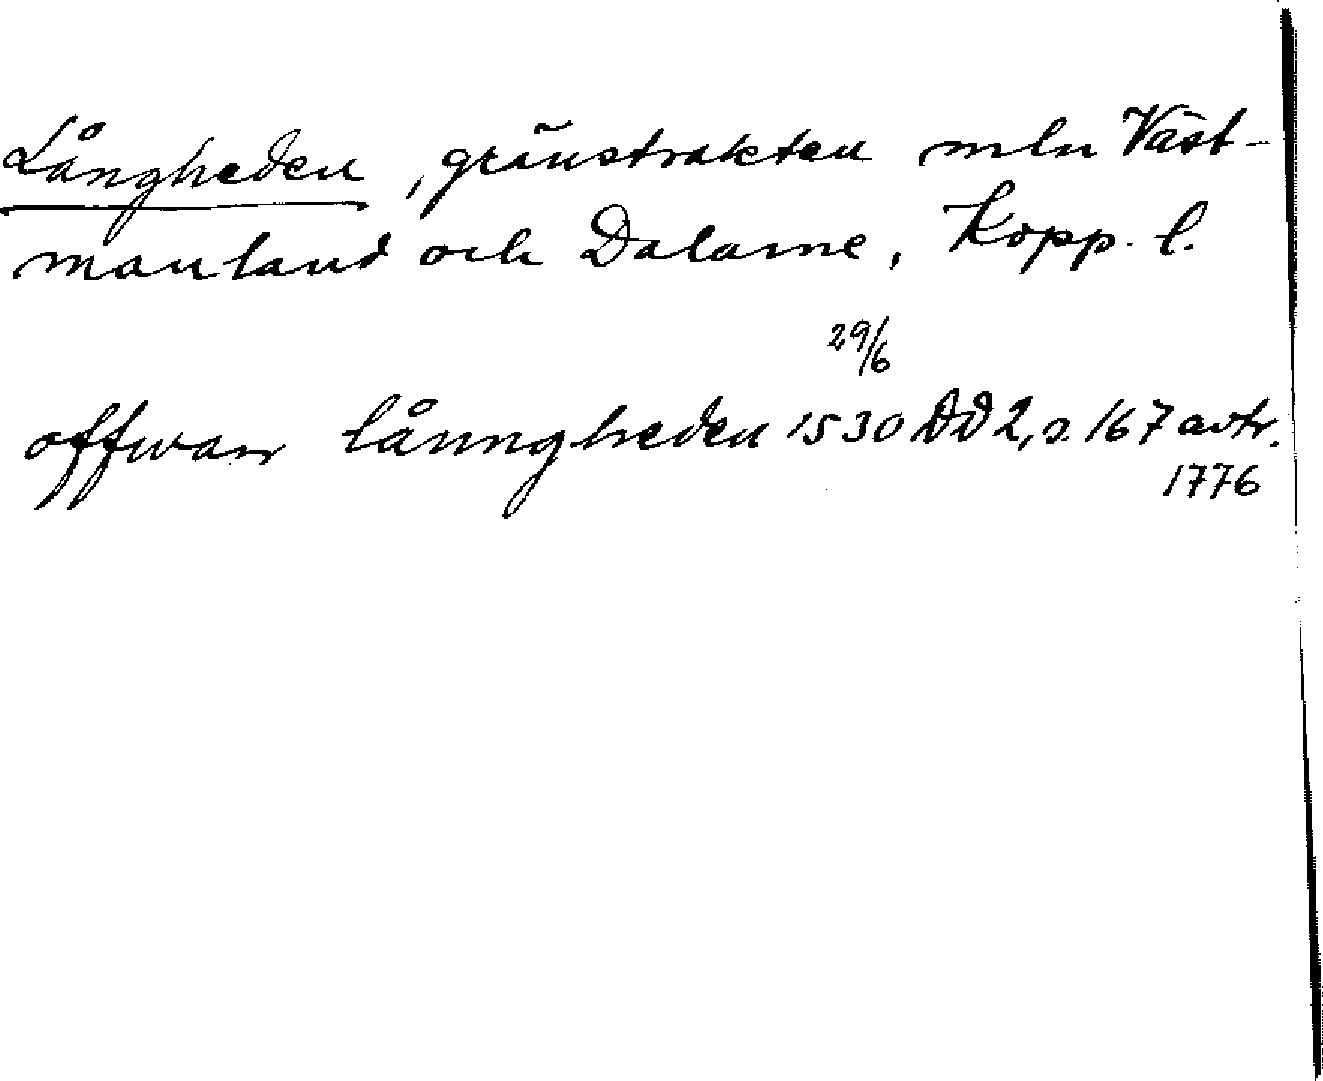 Långheden, gränstrakten mln Väst-
manland och Dalarne, Kopp. l.
29/6
offwan lånngheden 1530 DD 2, s. 167 avtr.
1776